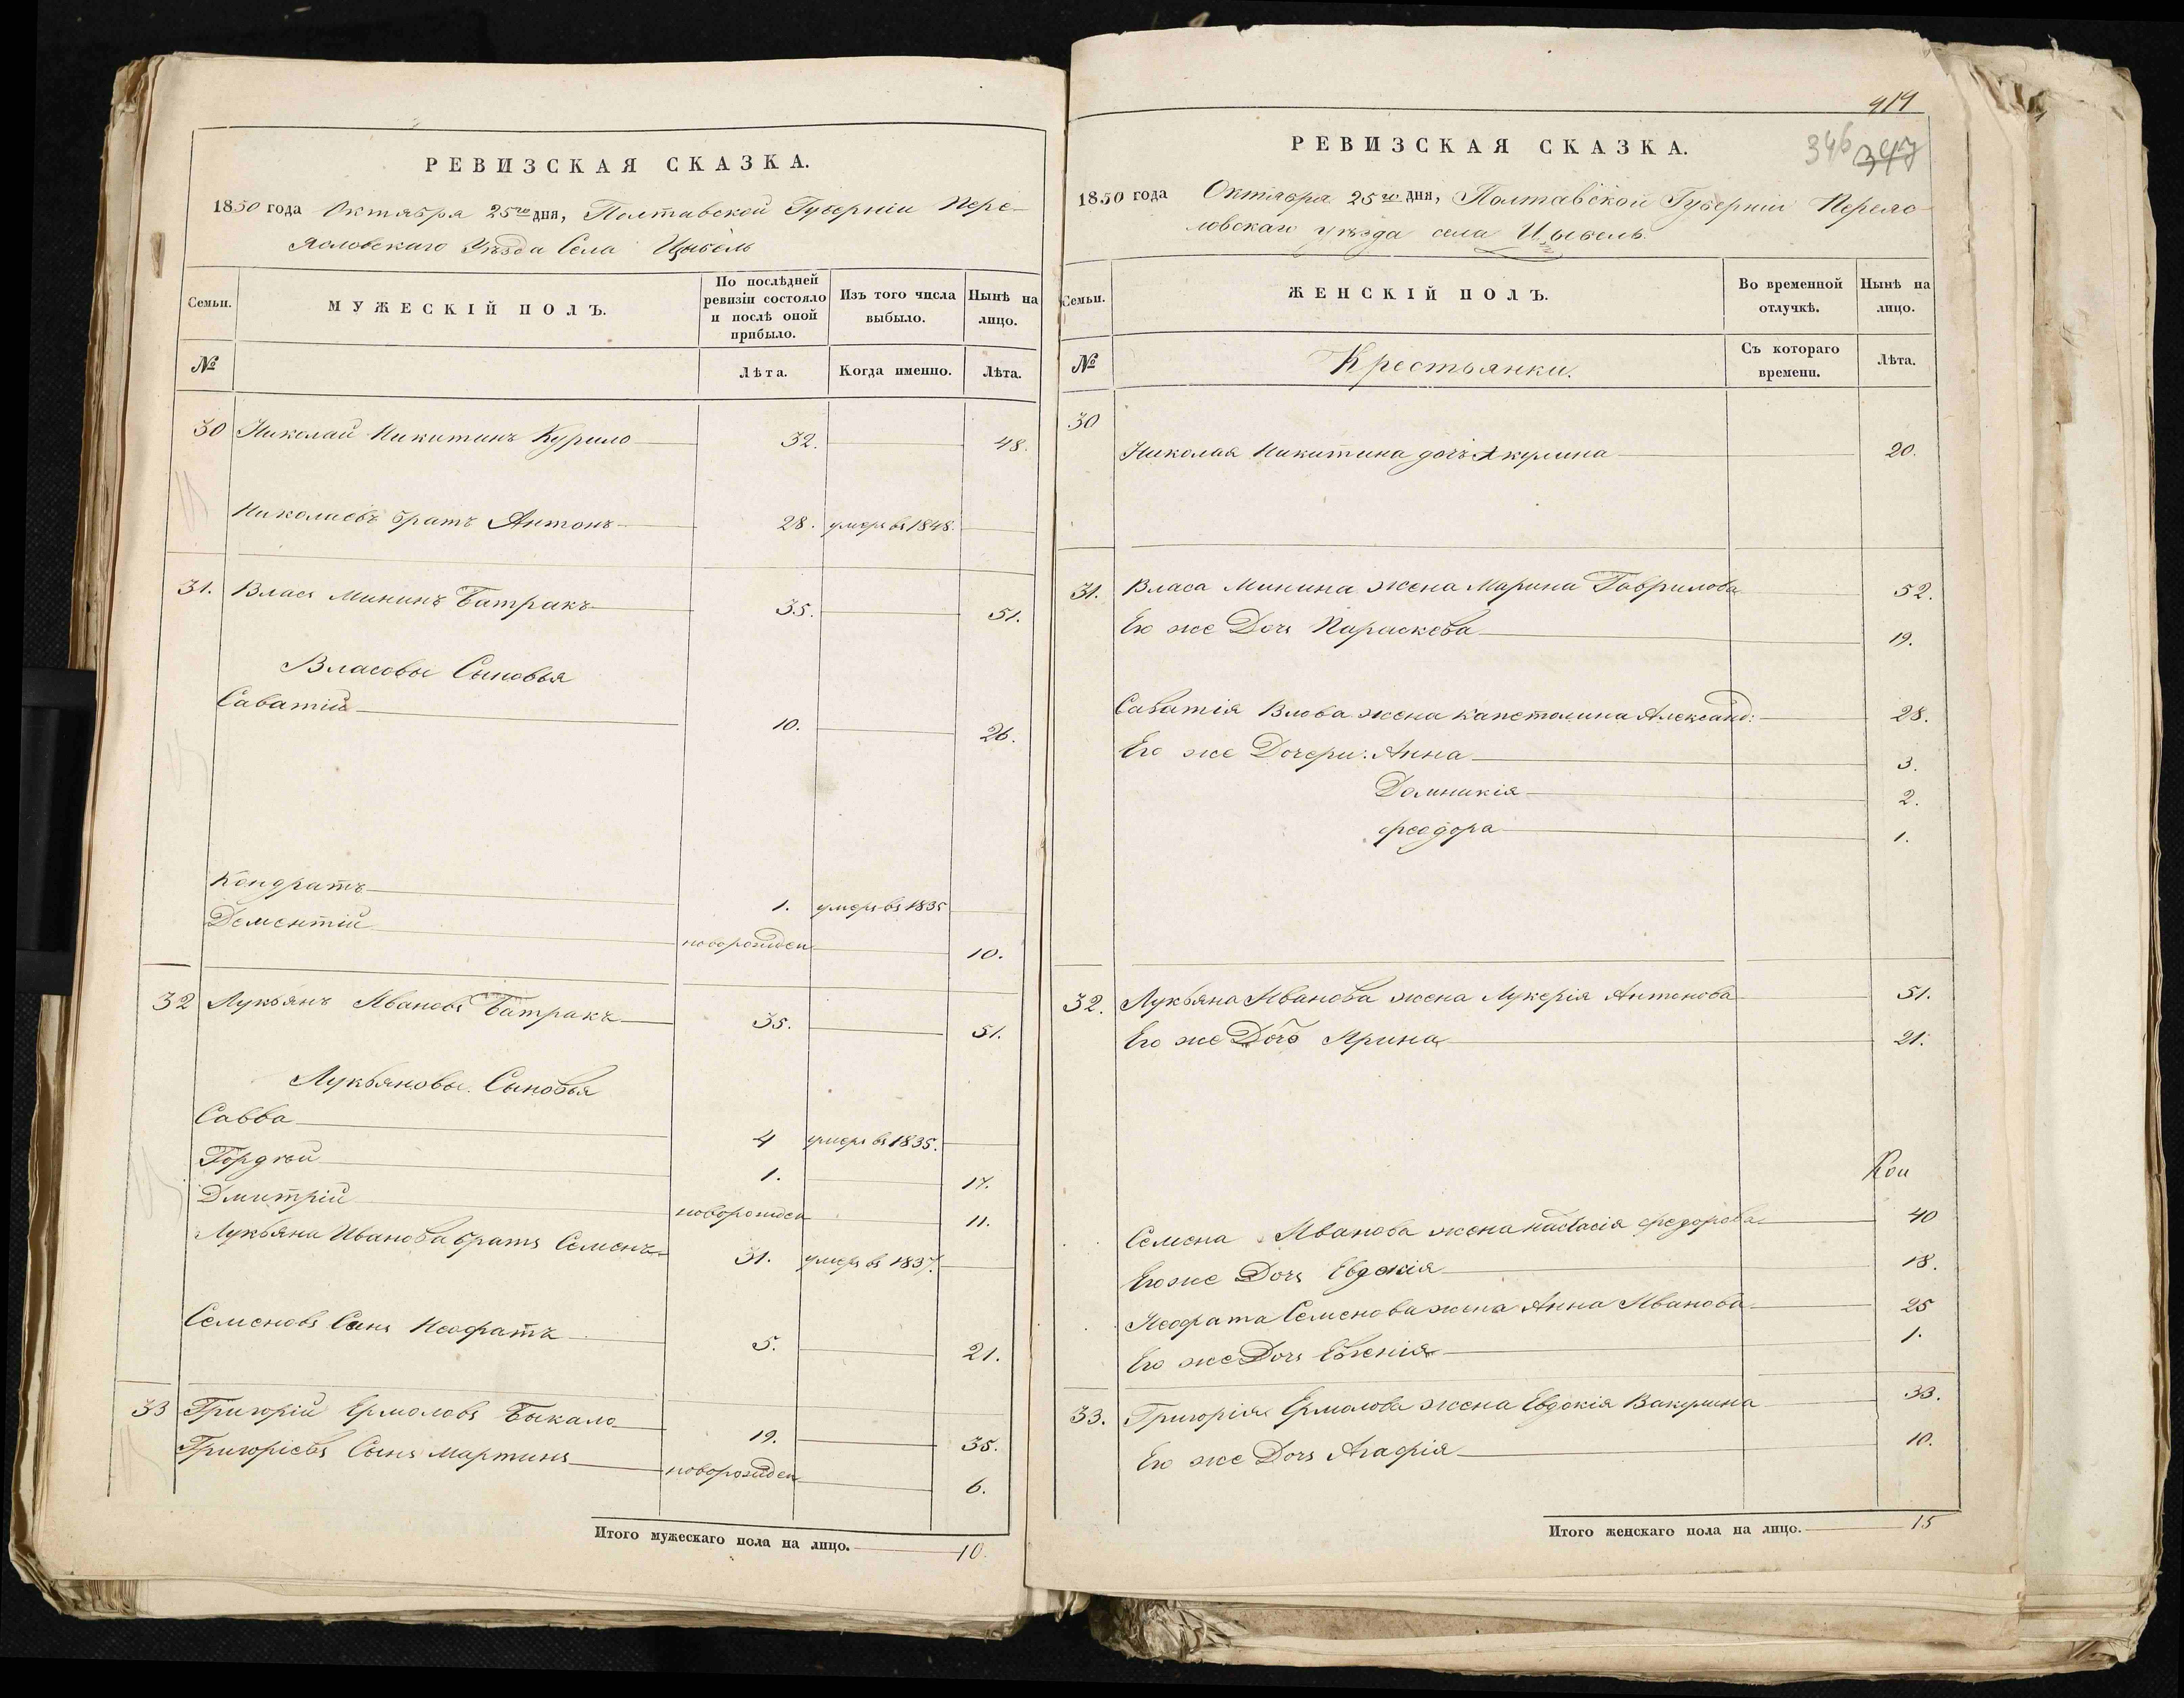 РЕВИЗСКАЯ СКАЗКА.
1850 года Октября 25го дня, Полтавской Губерніи Пере-
яславскаго Уѣзда Села Цыбель
Семьи.
МУЖЕСКІЙ ПОЛЪ.
По послѣдней ревизіи состояло и послѣ оной прибыло.
Изъ того числа выбыло.
Нынѣ на лицо.
№
Лѣта.
Когда именно.
Лѣта.
30 Николай Никитинъ Курило 32. 48.
Николаевъ братъ Антонъ 28. умеръ въ 1848.
31. Власъ Мининъ Батракъ 35. 51.
Власовы Сыновья
Саватій 10. 26.
Кондратъ 1. умеръ въ 1835
Дементій новорожден 10.
32 Лукьянъ Ивановъ Батракъ 35. 51.
Лукьяновы Сыновья
Савва 4 умеръ въ 1835.
Гордѣй 1. 17.
Дмитрій новорожден 11.
Лукьяна Иванова братъ Семенъ 31. умеръ въ 1837.
Семеновъ Сынъ Неофатъ 5. 21.
33 Григорій Ермоловъ Быкало 19. 35.
Григоріевъ Сынъ Мартинъ новорожден 6.
Итого мужескаго пола на лицо. 10.
419
346 347
РЕВИЗСКАЯ СКАЗКА.
1850 года Октября 25го дня, Полтавской Губерніи Переяс
ловскаго уѣзда села Цыбель.
Семьи.
ЖЕНСКІЙ ПОЛЪ.
Во временной отлучкѣ.
Нынѣ на лицо.
№
Крестьянки.
Съ котораго времени.
Лѣта.
30
Николая Никитина дочь Акулина 20.
31. Власа Минина жена Марина Гаврилова 52.
Его же Дочь Параскева 19.
Саватія Влова жена Капетолина Александ: 28.
Его же Дочери: Анна 3.
Домникія 2.
Феодора 1.
32. Лукьяна Иванова жена Лукерія Антонова 51.
Его же Дочь Ярина 21.
Семена Иванова жена Настасія Федорова 40
Его же Дочь Евдокія 18.
Неофата Семенова жена Анна Иванова 25
Его же Дочь Евгенія 1.
33. Григорія Ермолова жена Евдокія Вакулина 33.
Его же Дочь Агафія 10.
Итого женскаго пола на лицо. 15